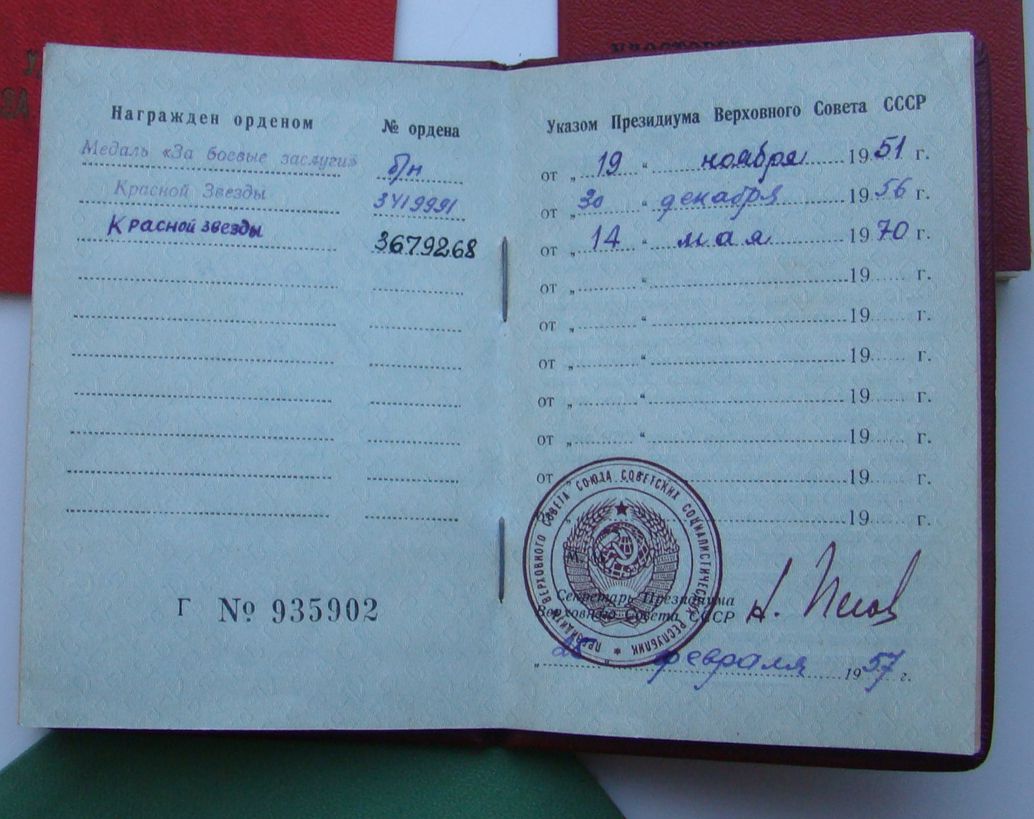 Награжден орденом
№ ордена
Медаль «За боевые заслуги» б/н
Красной Звезды 3419991
Красной звезды 3679268
Г № 935902
Указом Президиума Верховного Совета СССР
от „ 19 “ ноября 1951 г.
от „ 30 “ декабря 1956 г.
от „ 14 “ мая 1970 г.
от „ “ 19 г.
от „ “ 19 г.
от „ “ 19 г.
от „ “ 19 г.
от „ “ 19 г.
от „ 19 г.
19 г.
ПРЕЗИДИУМ ВЕРХОВНОГО СОВЕТА СОЮЗА СОВЕТСКИХ СОЦИАЛИСТИЧЕСКИХ РЕСПУБЛИК
Секретарь Президиума
Верховного Совета СССР
„ “ февраля 1957 г.